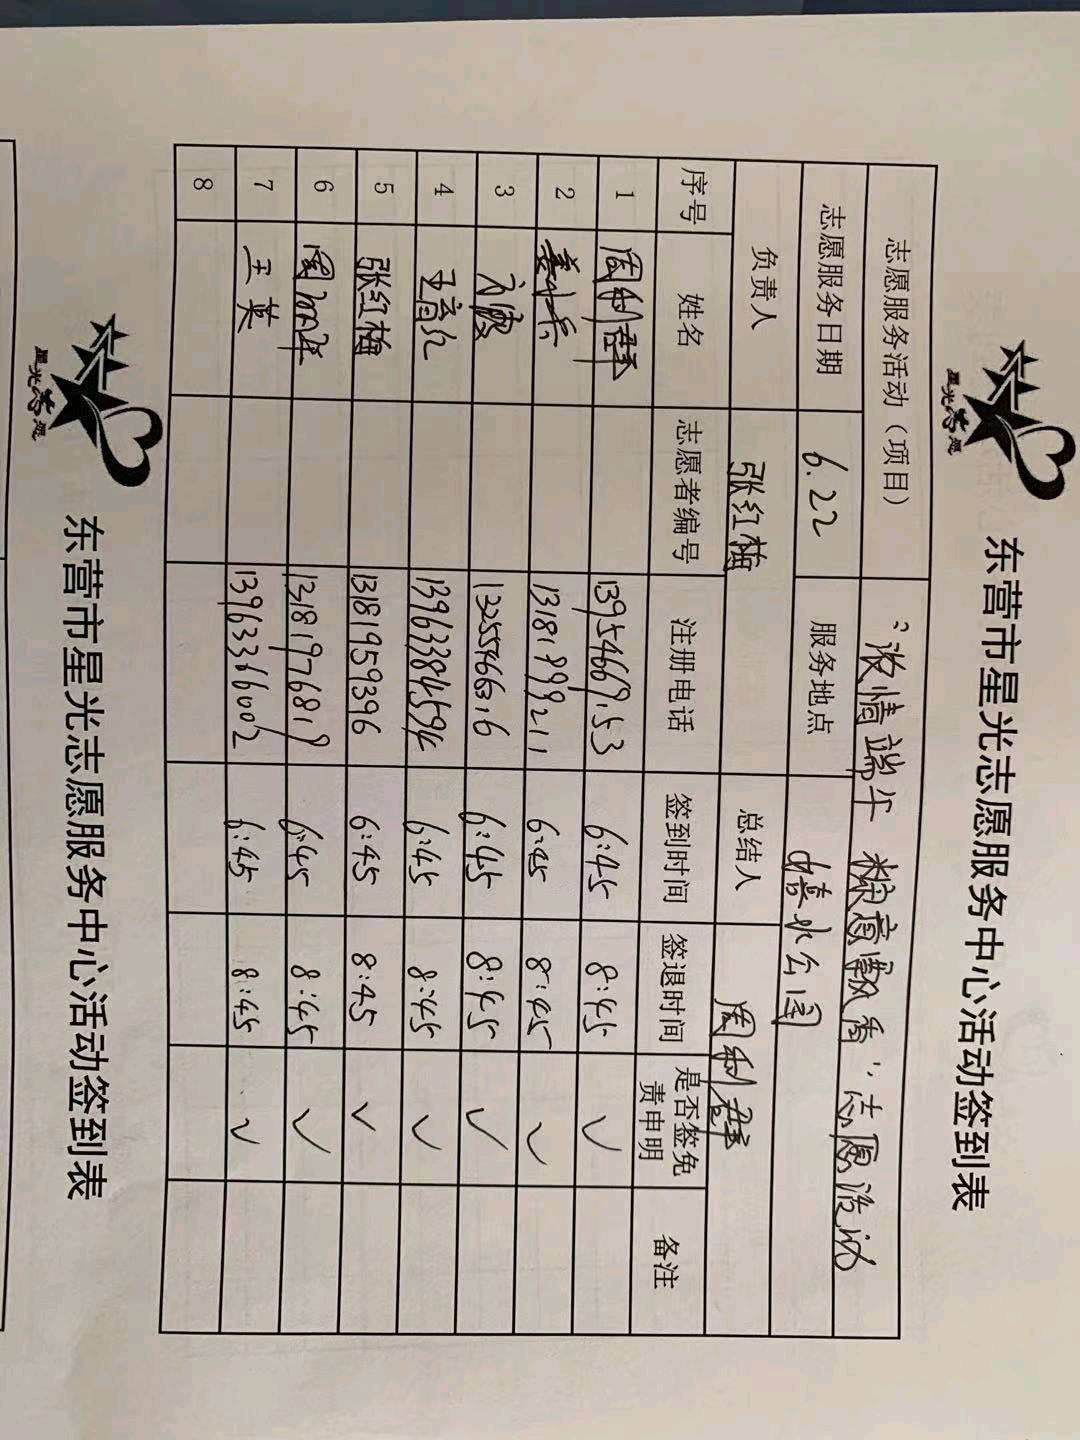 星光志愿
东营市星光志愿服务中心活动签到表
志愿服务活动（项目） “浓情端午 粽意飘香”志愿活动
志愿服务日期 6.22 服务地点 清水公园
负责人 张红梅 总结人 周利群
序号 姓名 志愿者编号 注册电话 签到时间 签退时间 是否签免责申明 备注
1 周利群 6:45 8:45 ✓
2 13181999211 6:45 8:45 ✓
3 13255466316 6:45 8:45 ✓
4 13963384594 6:45 8:45 ✓
5 张红梅 13181959396 6:45 8:45 ✓
6 13181976819 6:45 8:45 ✓
7 王英 13963366002 6:45 8:45 ✓
8
星光志愿
东营市星光志愿服务中心活动签到表